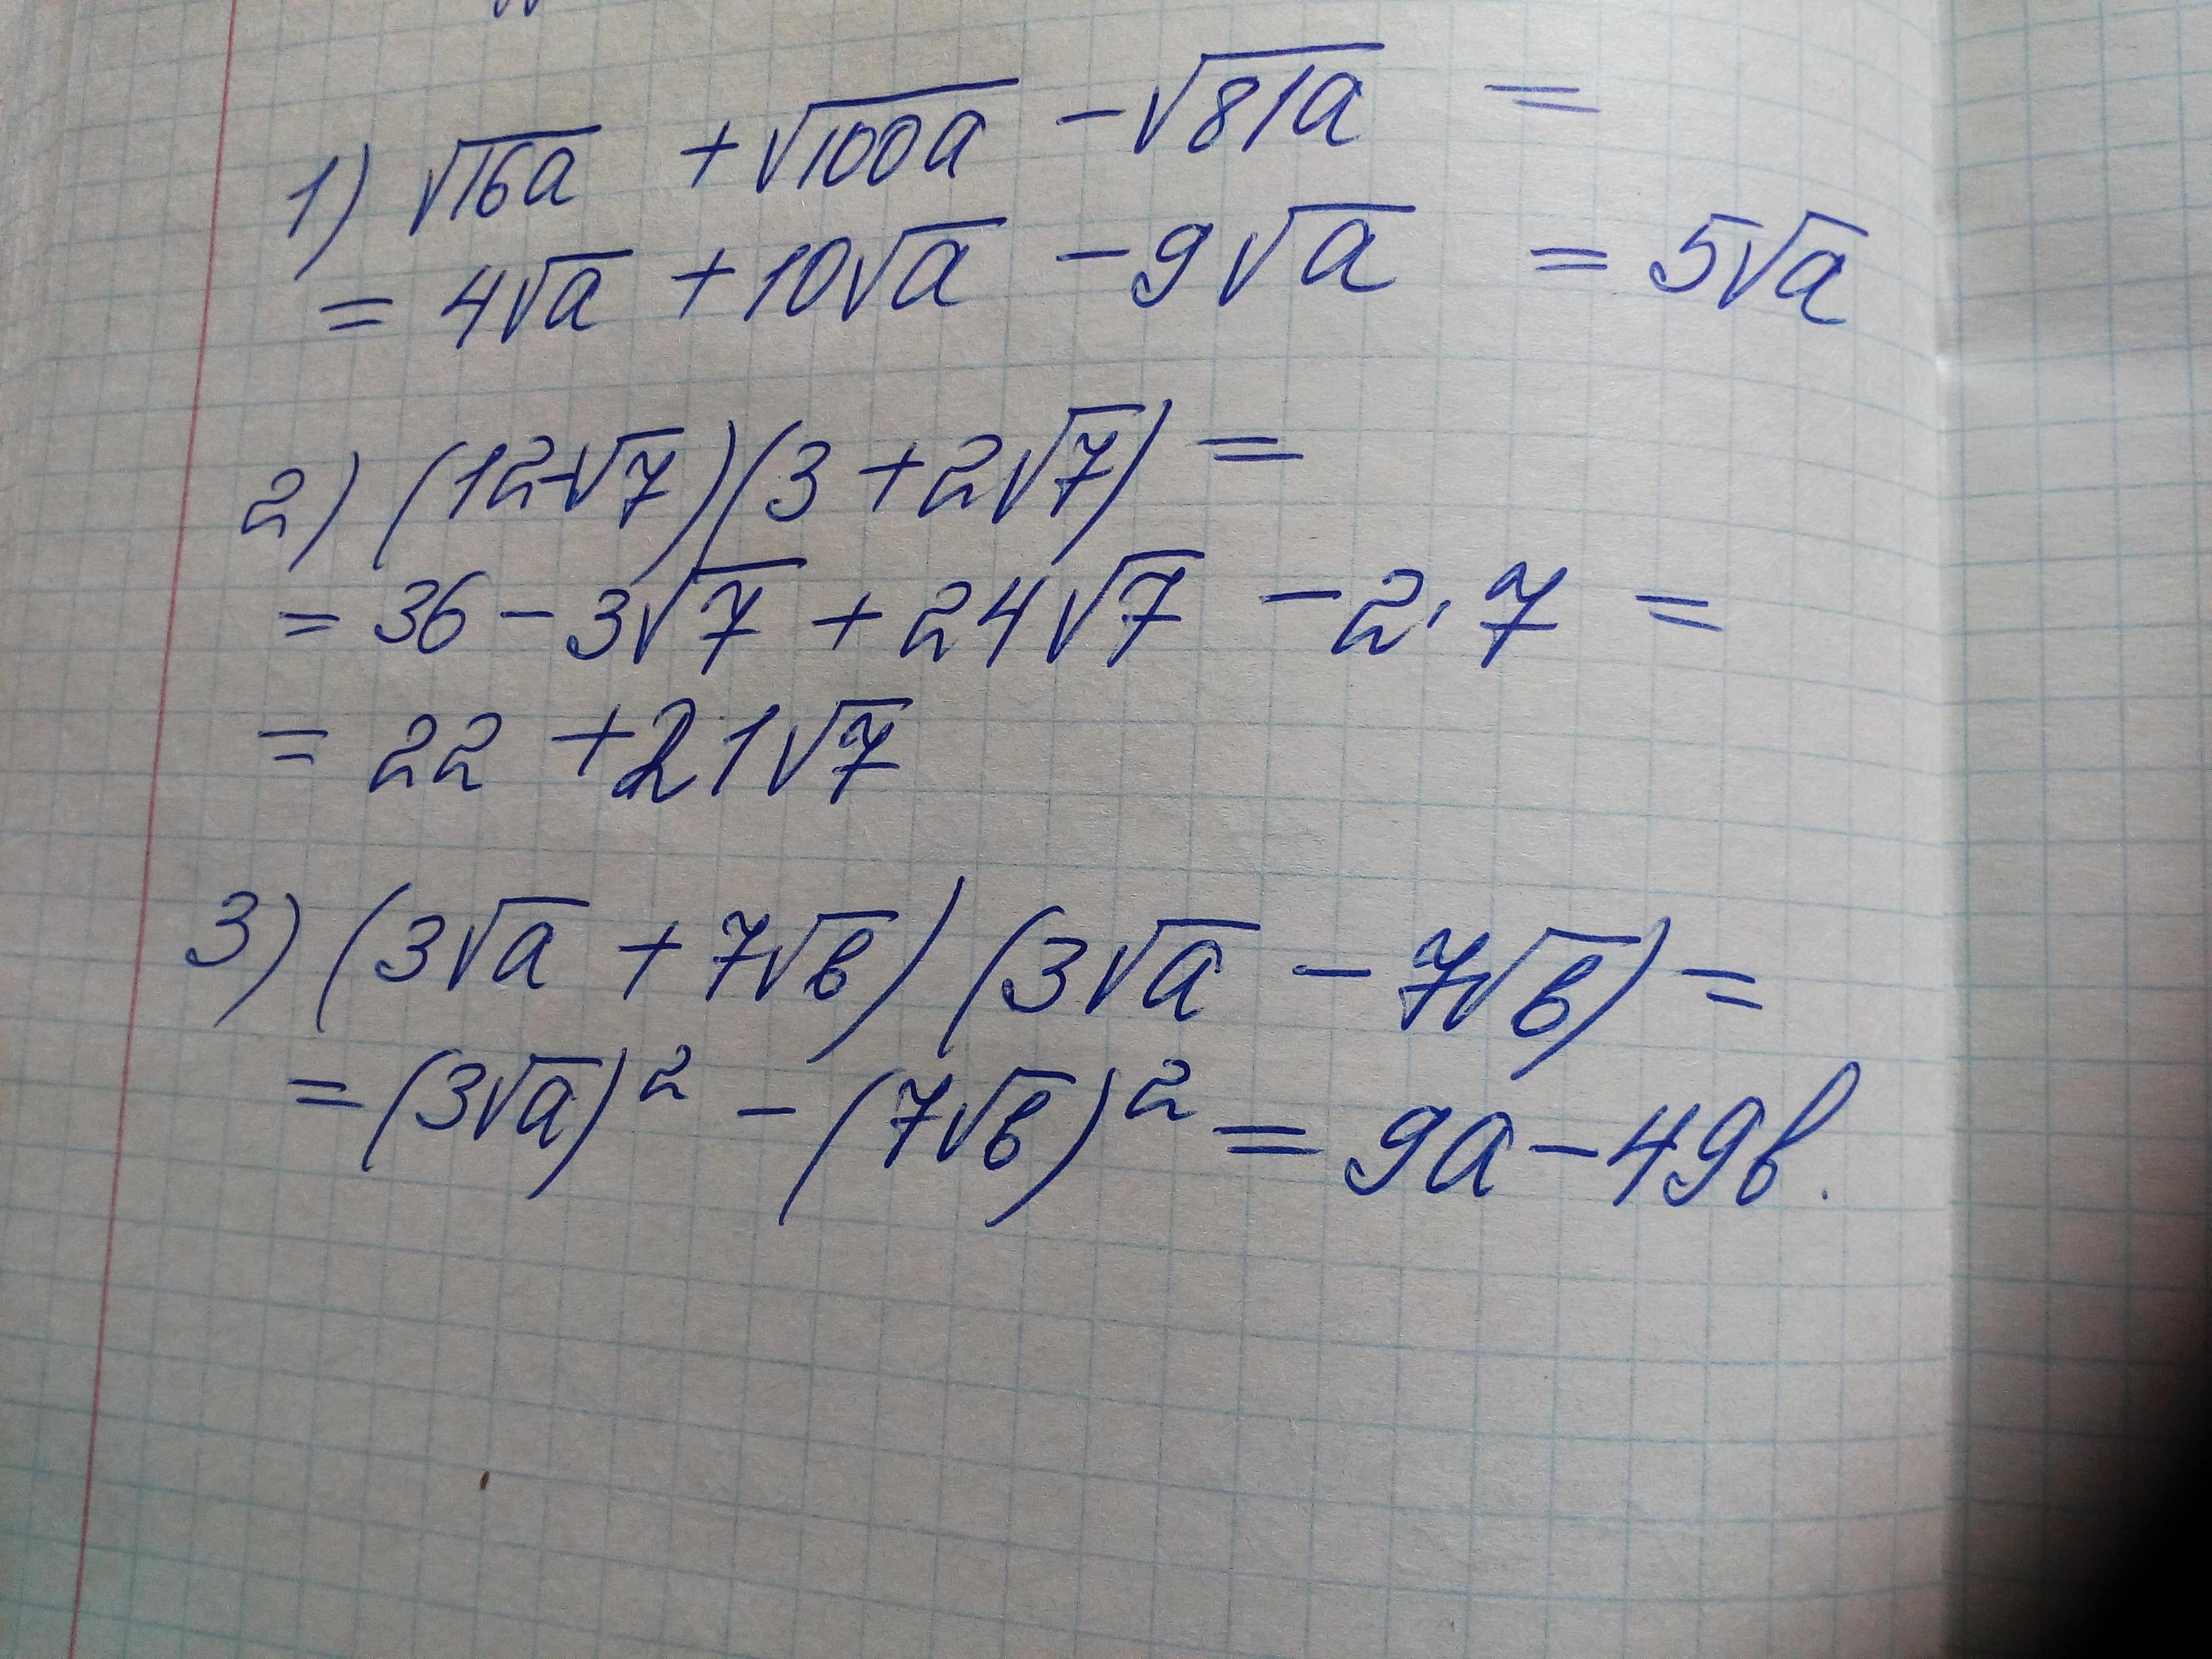 1) √16a + √100a - √81a =
= 4√a + 10√a - 9√a = 5√a
2) (12-√7)(3 + 2√7) =
= 36 - 3√7 + 24√7 - 2·7 =
= 22 + 21√7
3) (3√a + 7√в) (3√a - 7√в) =
= (3√a)² - (7√в)² = 9a - 49в.